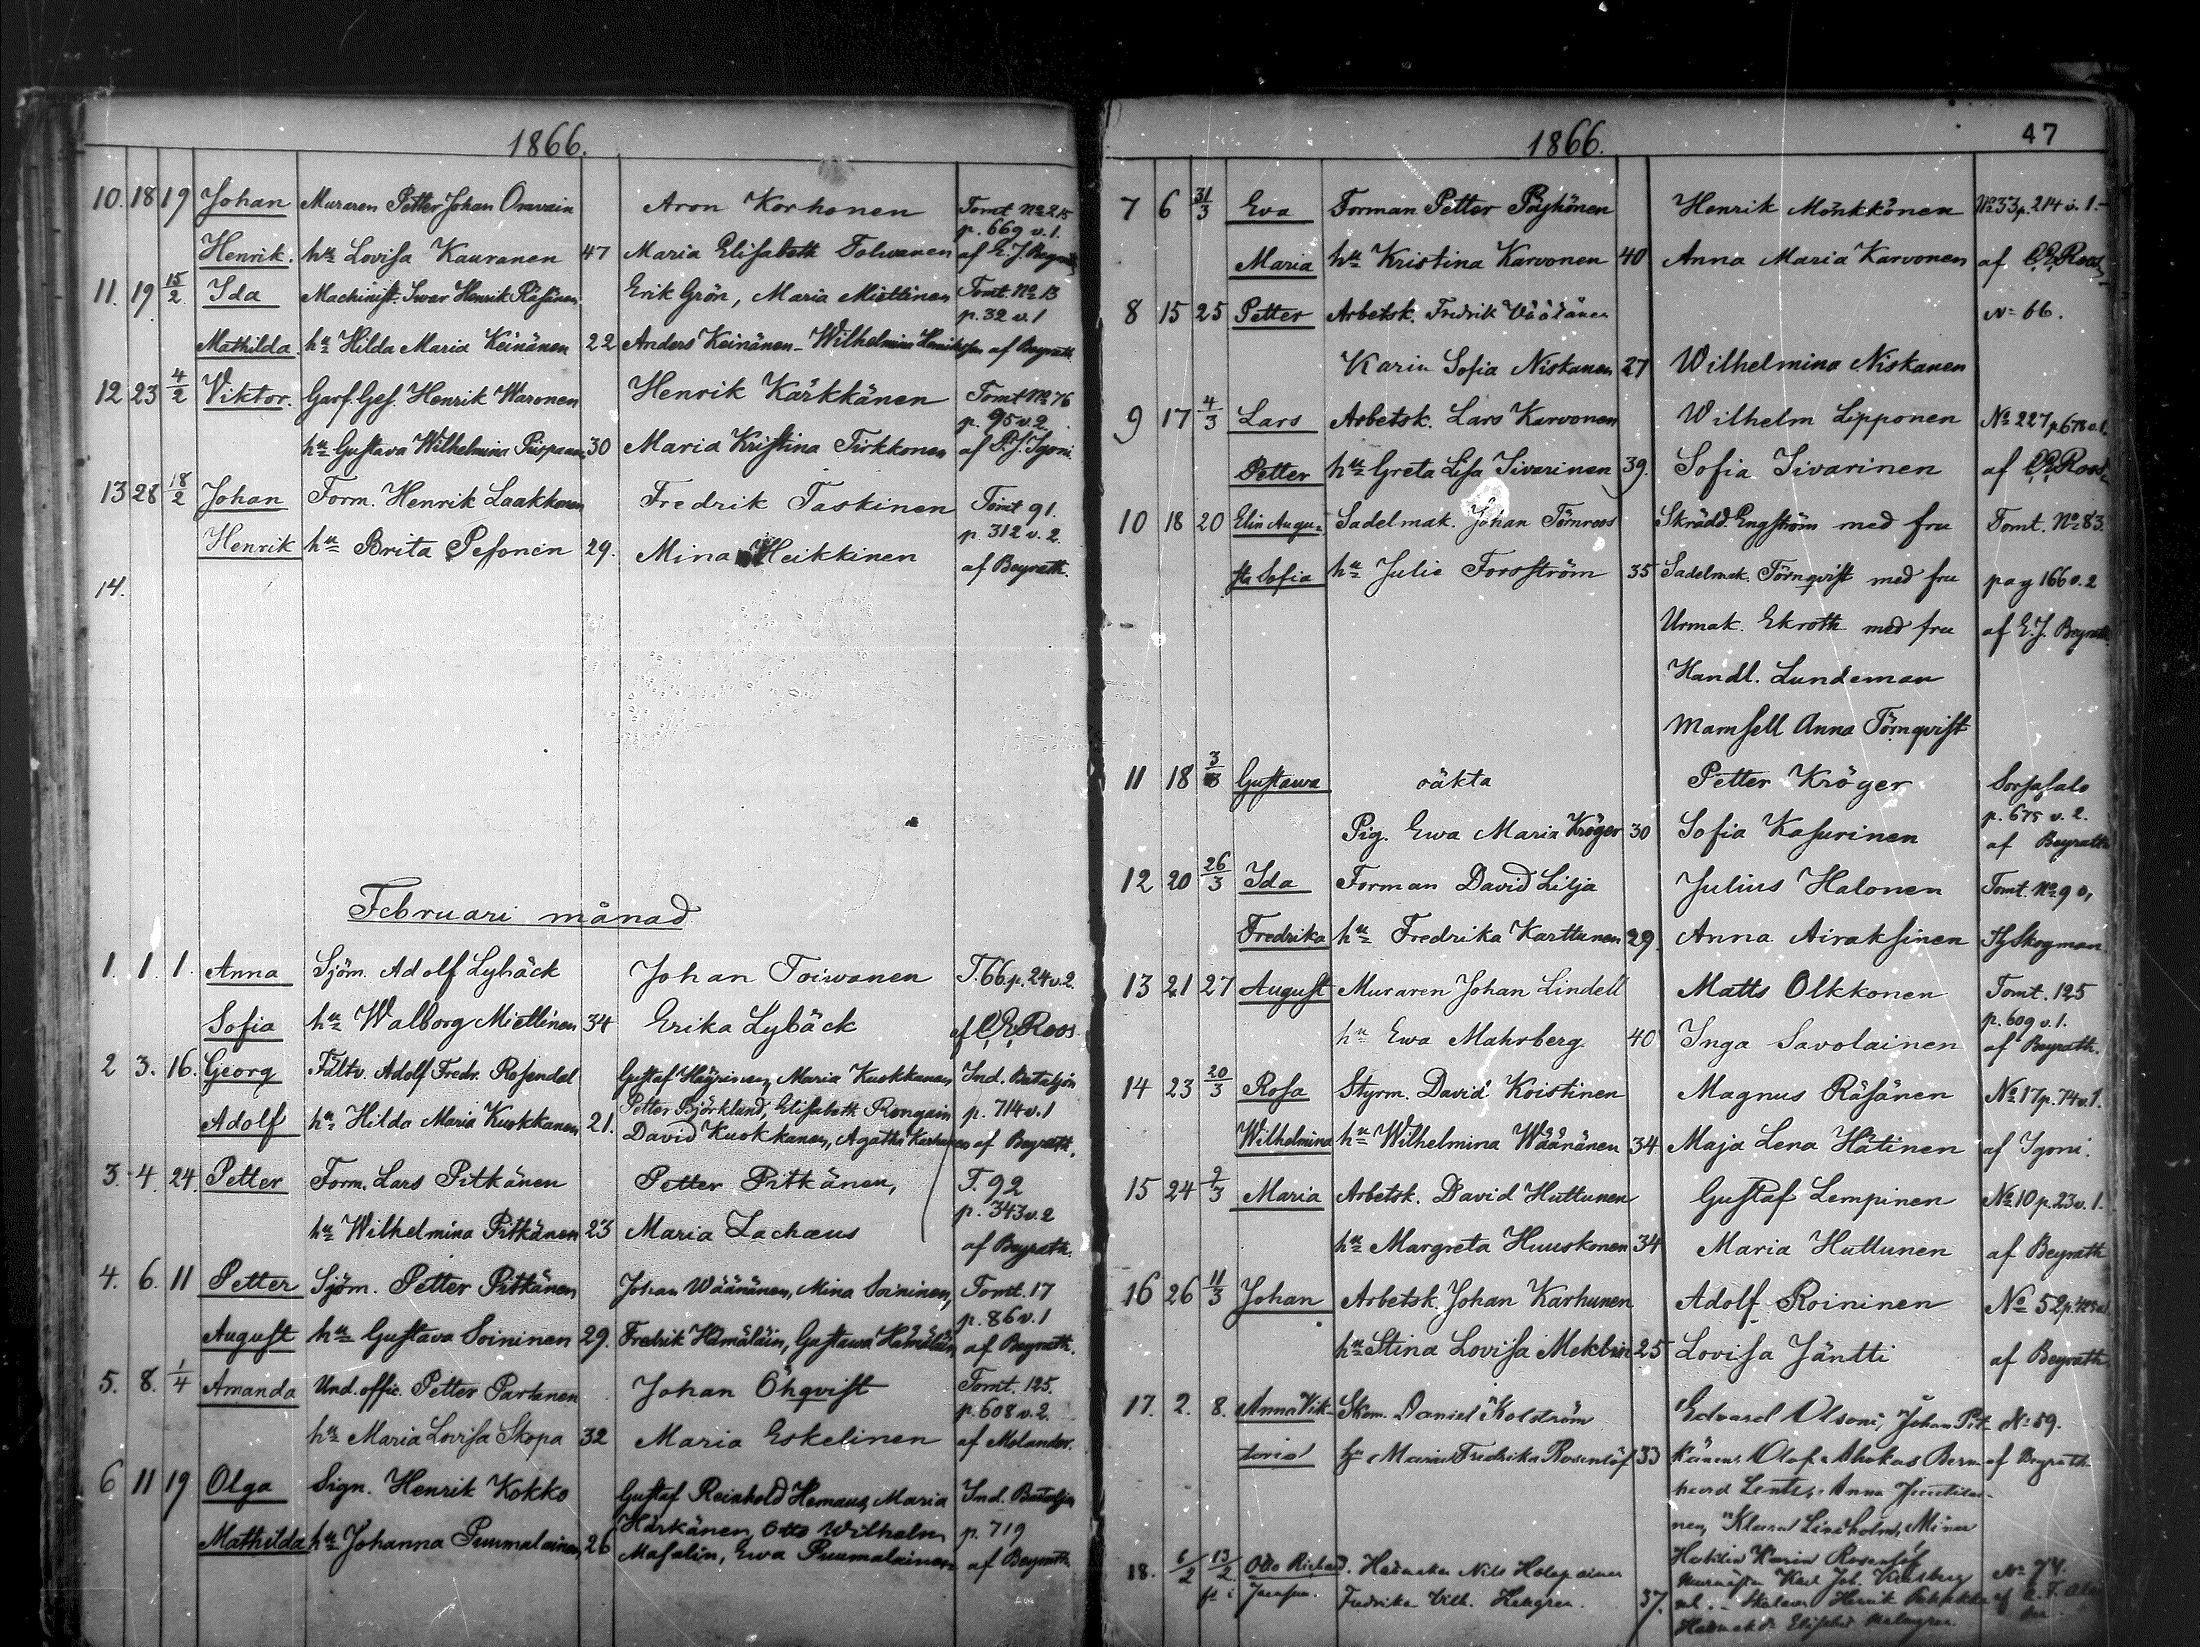 1866.
10. 18 19 Johan Muraren Petter Johan Oravain Aron Korhonen Tomt No 215
p. 669 v. 1.
Henrik. hu Lovisa Kauranen 47 Maria Elisabeth Tolwanen af E. J. Beyrath
11. 19 15/2 Ida Machinist. Iwar Henrik Räsänen. Erik Grön, Maria Miettinen Tomt. No 13
p. 32 v. 1
Mathilda. hu Hilda Maria Keinänen 22 Anders Keinänen - Wilhelmina af Beyrath
12 23 4/2 Viktor. Garf. Ges. Henrik Waronen Henrik Kärkkänen Tomt No 76
p. 95 v. 2
hu Gustava Wilhelmina 30 Maria Kristina Tirkkonen af Igoni.
13 28 18/2 Johan Form. Henrik Laakkonen Fredrik Taskinen Tomt 91.
p. 312 v. 2.
Henrik hu Brita Pesonen 29. Mina Heikkinen af Beyrath.
14.
Februari månad
1. 1. 1. Anna Sjöm. Adolf Lybäck Johan Toiwanen T. 66 p. 24 v. 2.
Sofia hu Walborg Miettinen 34 Erika Lybäck af C. E. Roos.
2 3. 16. Georg Fältv. Adolf Fredr. Rosendal Gustaf Häyrinen, Maria Kuokkanen Ind. Bataljon
Petter Björklund, Elisabeth Rongain p. 714 v. 1
Adolf hu Hilda Maria Kuokkanen 21. David Kuokkanen, Agatha Karhunen af Beyrath.
3. 4. 24. Petter Form. Lars Pitkänen Petter Pitkänen, T. 92
p. 343 v. 2
hu Wilhelmina Pitkänen 23 Maria Zachæus af Beyrath.
4. 6. 11 Petter Sjöm. Petter Pitkänen Johan Wäänänen, Mina Soininen, Tomt. 17
p. 86 v. 1
August hu Gustava Soininen 29. Fredrik Hämäläin, Gustawa Hämäläin af Beyrath.
5. 8. 1/4 Amanda Und. offic. Petter Partanen Johan Öhqvist Tomt. 125.
p. 608 v. 2.
hu Maria Lovisa Skopa 32 Maria Eskelinen af Molander.
6 11 19 Olga Sign. Henrik Kokko Gustaf Reinhold Maria Ind. Bataljon
Härkänen, Otto Wilhelm p. 719
Mathilda hu Johanna Puumalainen, 26 Masalin, Ewa Puumalainen af Beyrath
1866. 47
7 6 31/3 Eva Forman Petter Pöyhönen Henrik Mönkkönen No 33 p. 214 v. 1.
Maria hu Kristina Karvonen 40 Anna Maria Karvonen af C. E. Roos
8 15 25 Petter Arbetsk. Fredrik Väätänen No 66.
Karin Sofia Niskanen 27 Wilhelmina Niskanen
9 17 4/3 Lars Arbetsk. Lars Karvonen Wilhelm Lipponen No 227 p 678 v. 1.
Petter hu Greta Lisa Sivarinen 39. Sofia Sivarinen af C. E. Roos.
10 18 20 Elin Augu- Sadelmak. Johan Törnroos Skrädd. Engström med fru Tomt. No 83.
sta Sofia hu Julie Forsström 35 Sadelmak. Törnqvist med fru pag 166 v. 2
Urmak. Ekroth med fru af E. J. Beyrath
Handl. Lundeman
Mamsell Anna Törnqvist
11 18 3/3 Gustawa oäkta Petter Kröger Sorsasalo
p. 675 v. 2.
Pig. Ewa Maria Kröger 30 Sofia Kasurinen af Beyrath
12 20 26/3 Ida Forman David Lilja Julius Halonen Tomt. No 90,
Fredrika hu Fredrika Karttunen 29. Anna Airaksinen Hj Skogman
13 21 27 August Muraren Johan Lindell Matts Olkkonen Tomt. 125
p. 609 v. 1.
hu Ewa Mahrberg 40 Inga Savolainen af Beyrath.
14 23 20/3 Rosa Styrm. David Koistinen Magnus Räsänen No 17 p. 74 v. 1.
Wilhelmina hu Wilhelmina Wäänänen 34 Maja Lena Hätinen af Igoni.
15 24 2/3 Maria Arbetsk. David Huttunen Gustaf Lempinen No 10 p. 23 v. 1.
hu Margreta Huuskonen 34 Maria Huttunen af Beyrath
16 26 11/3 Johan Arbetsk Johan Karhunen Adolf Roininen No 52
hu Stina Lovisa Meklin 25 Lovisa Jäntti af Beyrath
17. 2. 8. Anna Vik- Skom. Daniel Kolström Edvard Olsoni, Johan Pit- No 59.
toria hu Maria Fredrika Rosenlöf 33 känen, Olof Ahokas Bern- af Beyrath
hard Lents, Anna
nen, Klara Lindholm, Mina
Karin Rosenlöf
18. 6/2 13/2 Otto Richard. Nils Holopainen Karl Joh. No 74.
Fredrika Vilh. 37. Henrik af
Elisabet Malmgren